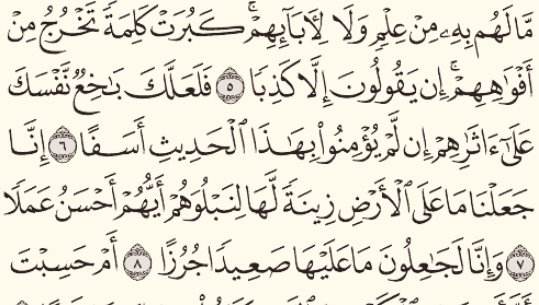 مَّا لَهُم بِهِۦ مِنْ عِلْمٍ وَلَا لِأَبَآئِهِمْ ۚ كَبُرَتْ كَلِمَةً تَخْرُجُ مِنْ
أَفْوَٰهِهِمْ ۚ إِن يَقُولُونَ إِلَّا كَذِبًا ۝٥ فَلَعَلَّكَ بَٰخِعٌ نَّفْسَكَ
عَلَىٰٓ ءَاثَٰرِهِمْ إِن لَّمْ يُؤْمِنُوا۟ بِهَٰذَا ٱلْحَدِيثِ أَسَفًا ۝٦ إِنَّا
جَعَلْنَا مَا عَلَى ٱلْأَرْضِ زِينَةً لَّهَا لِنَبْلُوَهُمْ أَيُّهُمْ أَحْسَنُ عَمَلًا
۝٧ وَإِنَّا لَجَٰعِلُونَ مَا عَلَيْهَا صَعِيدًا جُرُزًا ۝٨ أَمْ حَسِبْتَ